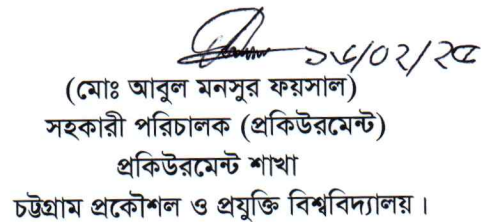 ১৬/০২/২৫
(মোঃ আবুল মনসুর ফয়সাল)
সহকারী পরিচালক (প্রকিউরমেন্ট)
প্রকিউরমেন্ট শাখা
চট্টগ্রাম প্রকৌশল ও প্রযুক্তি বিশ্ববিদ্যালয়।